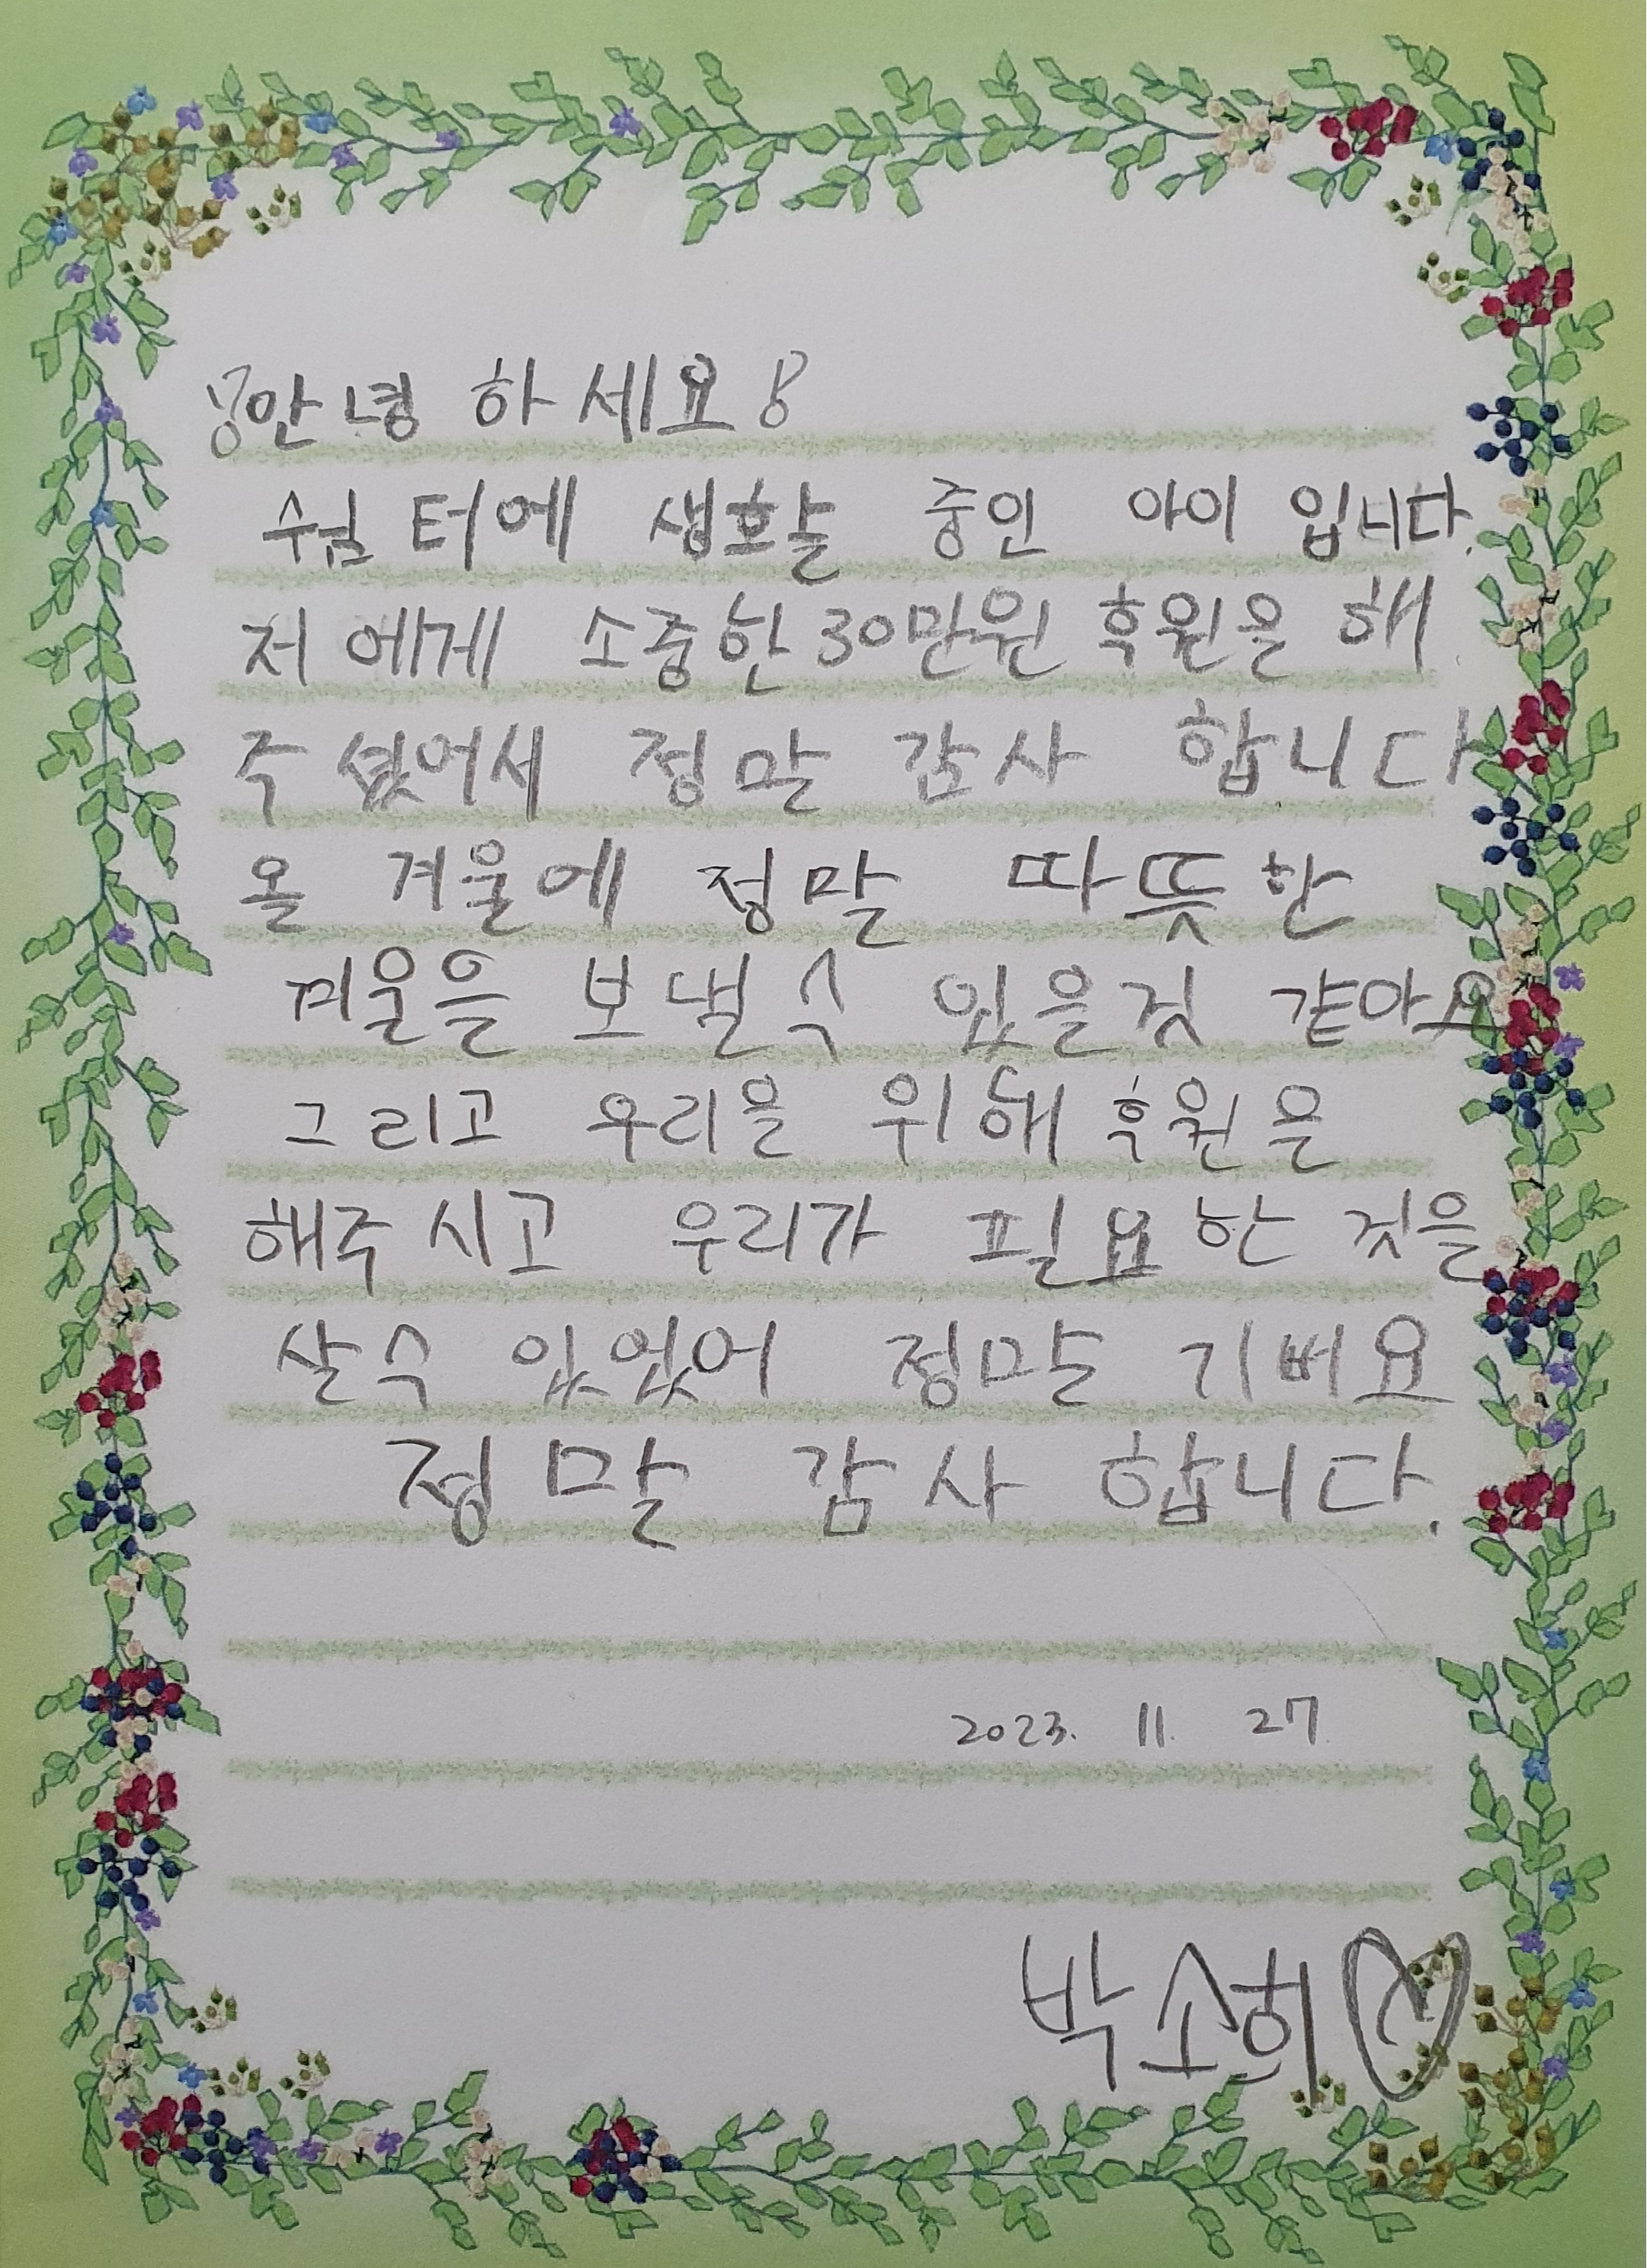 안녕 하세요
쉼터에 생활 중인 아이 입니다.
저 에게 소중한 30만원 후원을 해
주셨어서 정말 감사 합니다
올 겨울에 정말 따뜻한
겨울을 보낼수 있을것 같아요
그리고 우리을 위해 후원을
해주시고 우리가 필요한 것을
살수 있었어 정말 기버요
정말 감사 합니다.
2023. 11. 27
박소희♡